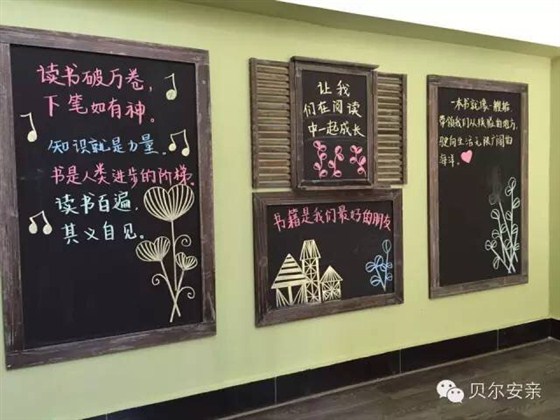 读书破万卷，
下笔如有神。
知识就是力量。
书是人类进步的阶梯。
读书百遍，
其义自见。
让我
们在阅读
中一起成长
书籍是我们最好的朋友
一本书就像一艘船
带领我们从狭隘的地方，
驶向生活无限广阔的
海洋。
贝尔安亲